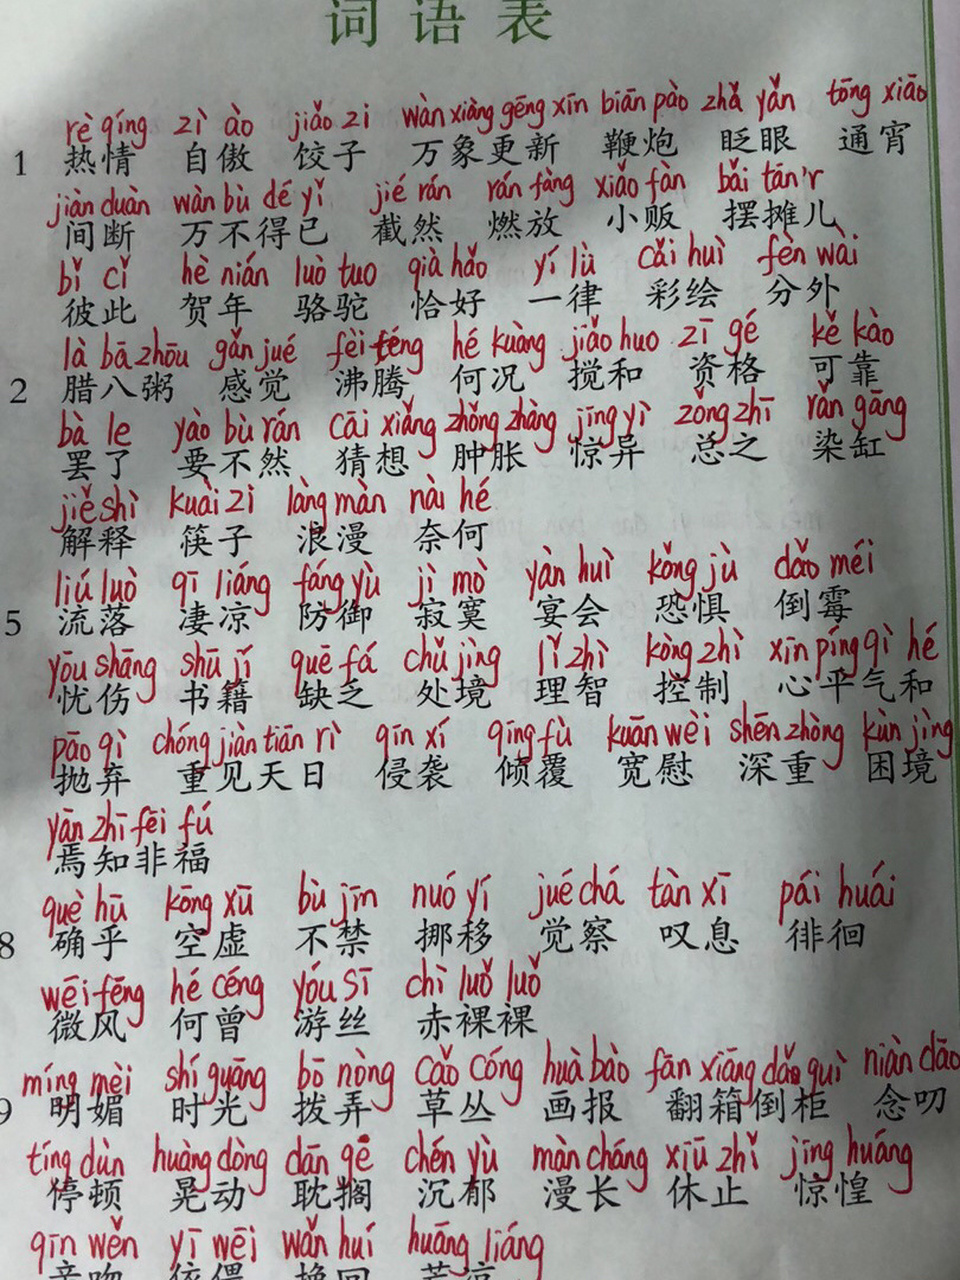 词语表
rè qíng zì ào jiǎo zi wàn xiàng gēng xīn biān pào zhǎ yǎn tōng xiāo
1 热情 自傲 饺子 万象更新 鞭炮 眨眼 通宵
jiàn duàn wàn bù dé yǐ jié rán rán fàng xiǎo fàn bǎi tān'r
间断 万不得已 截然 燃放 小贩 摆摊儿
bǐ cǐ hè nián luò tuo qià hǎo yí lǜ cǎi huì fèn wài
彼此 贺年 骆驼 恰好 一律 彩绘 分外
là bā zhōu gǎn jué fèi téng hé kuàng jiǎo huo zī gé kě kào
2 腊八粥 感觉 沸腾 何况 搅和 资格 可靠
bà le yào bù rán cāi xiǎng zhǒng zhàng jīng yì zǒng zhī rǎn gāng
罢了 要不然 猜想 肿胀 惊异 总之 染缸
jiě shì kuài zi làng màn nài hé
解释 筷子 浪漫 奈何
liú luò qī liáng fáng yù jì mò yàn huì kǒng jù dǎo méi
5 流落 凄凉 防御 寂寞 宴会 恐惧 倒霉
yōu shāng shū jí quē fá chǔ jìng lǐ zhì kòng zhì xīn píng qì hé
忧伤 书籍 缺乏 处境 理智 控制 心平气和
pāo qì chóng jiàn tiān rì qīn xí qīng fù kuān wèi shēn zhòng kùn jìng
抛弃 重见天日 侵袭 倾覆 宽慰 深重 困境
yān zhī fēi fú
焉知非福
què hū kōng xū bù jīn nuó yí jué chá tàn xī pái huái
8 确乎 空虚 不禁 挪移 觉察 叹息 徘徊
wēi fēng hé céng yóu sī chì luǒ luǒ
微风 何曾 游丝 赤裸裸
míng mèi shí guāng bō nòng cǎo cóng huà bào fān xiāng dǎo guì niàn dāo
9 明媚 时光 拨弄 草丛 画报 翻箱倒柜 念叨
tíng dùn huàng dòng dān gē chén yù màn cháng xiū zhǐ jīng huáng
停顿 晃动 耽搁 沉郁 漫长 休止 惊惶
qīn wěn yī wēi wǎn huí huāng liáng
亲吻 依偎 挽回 荒凉